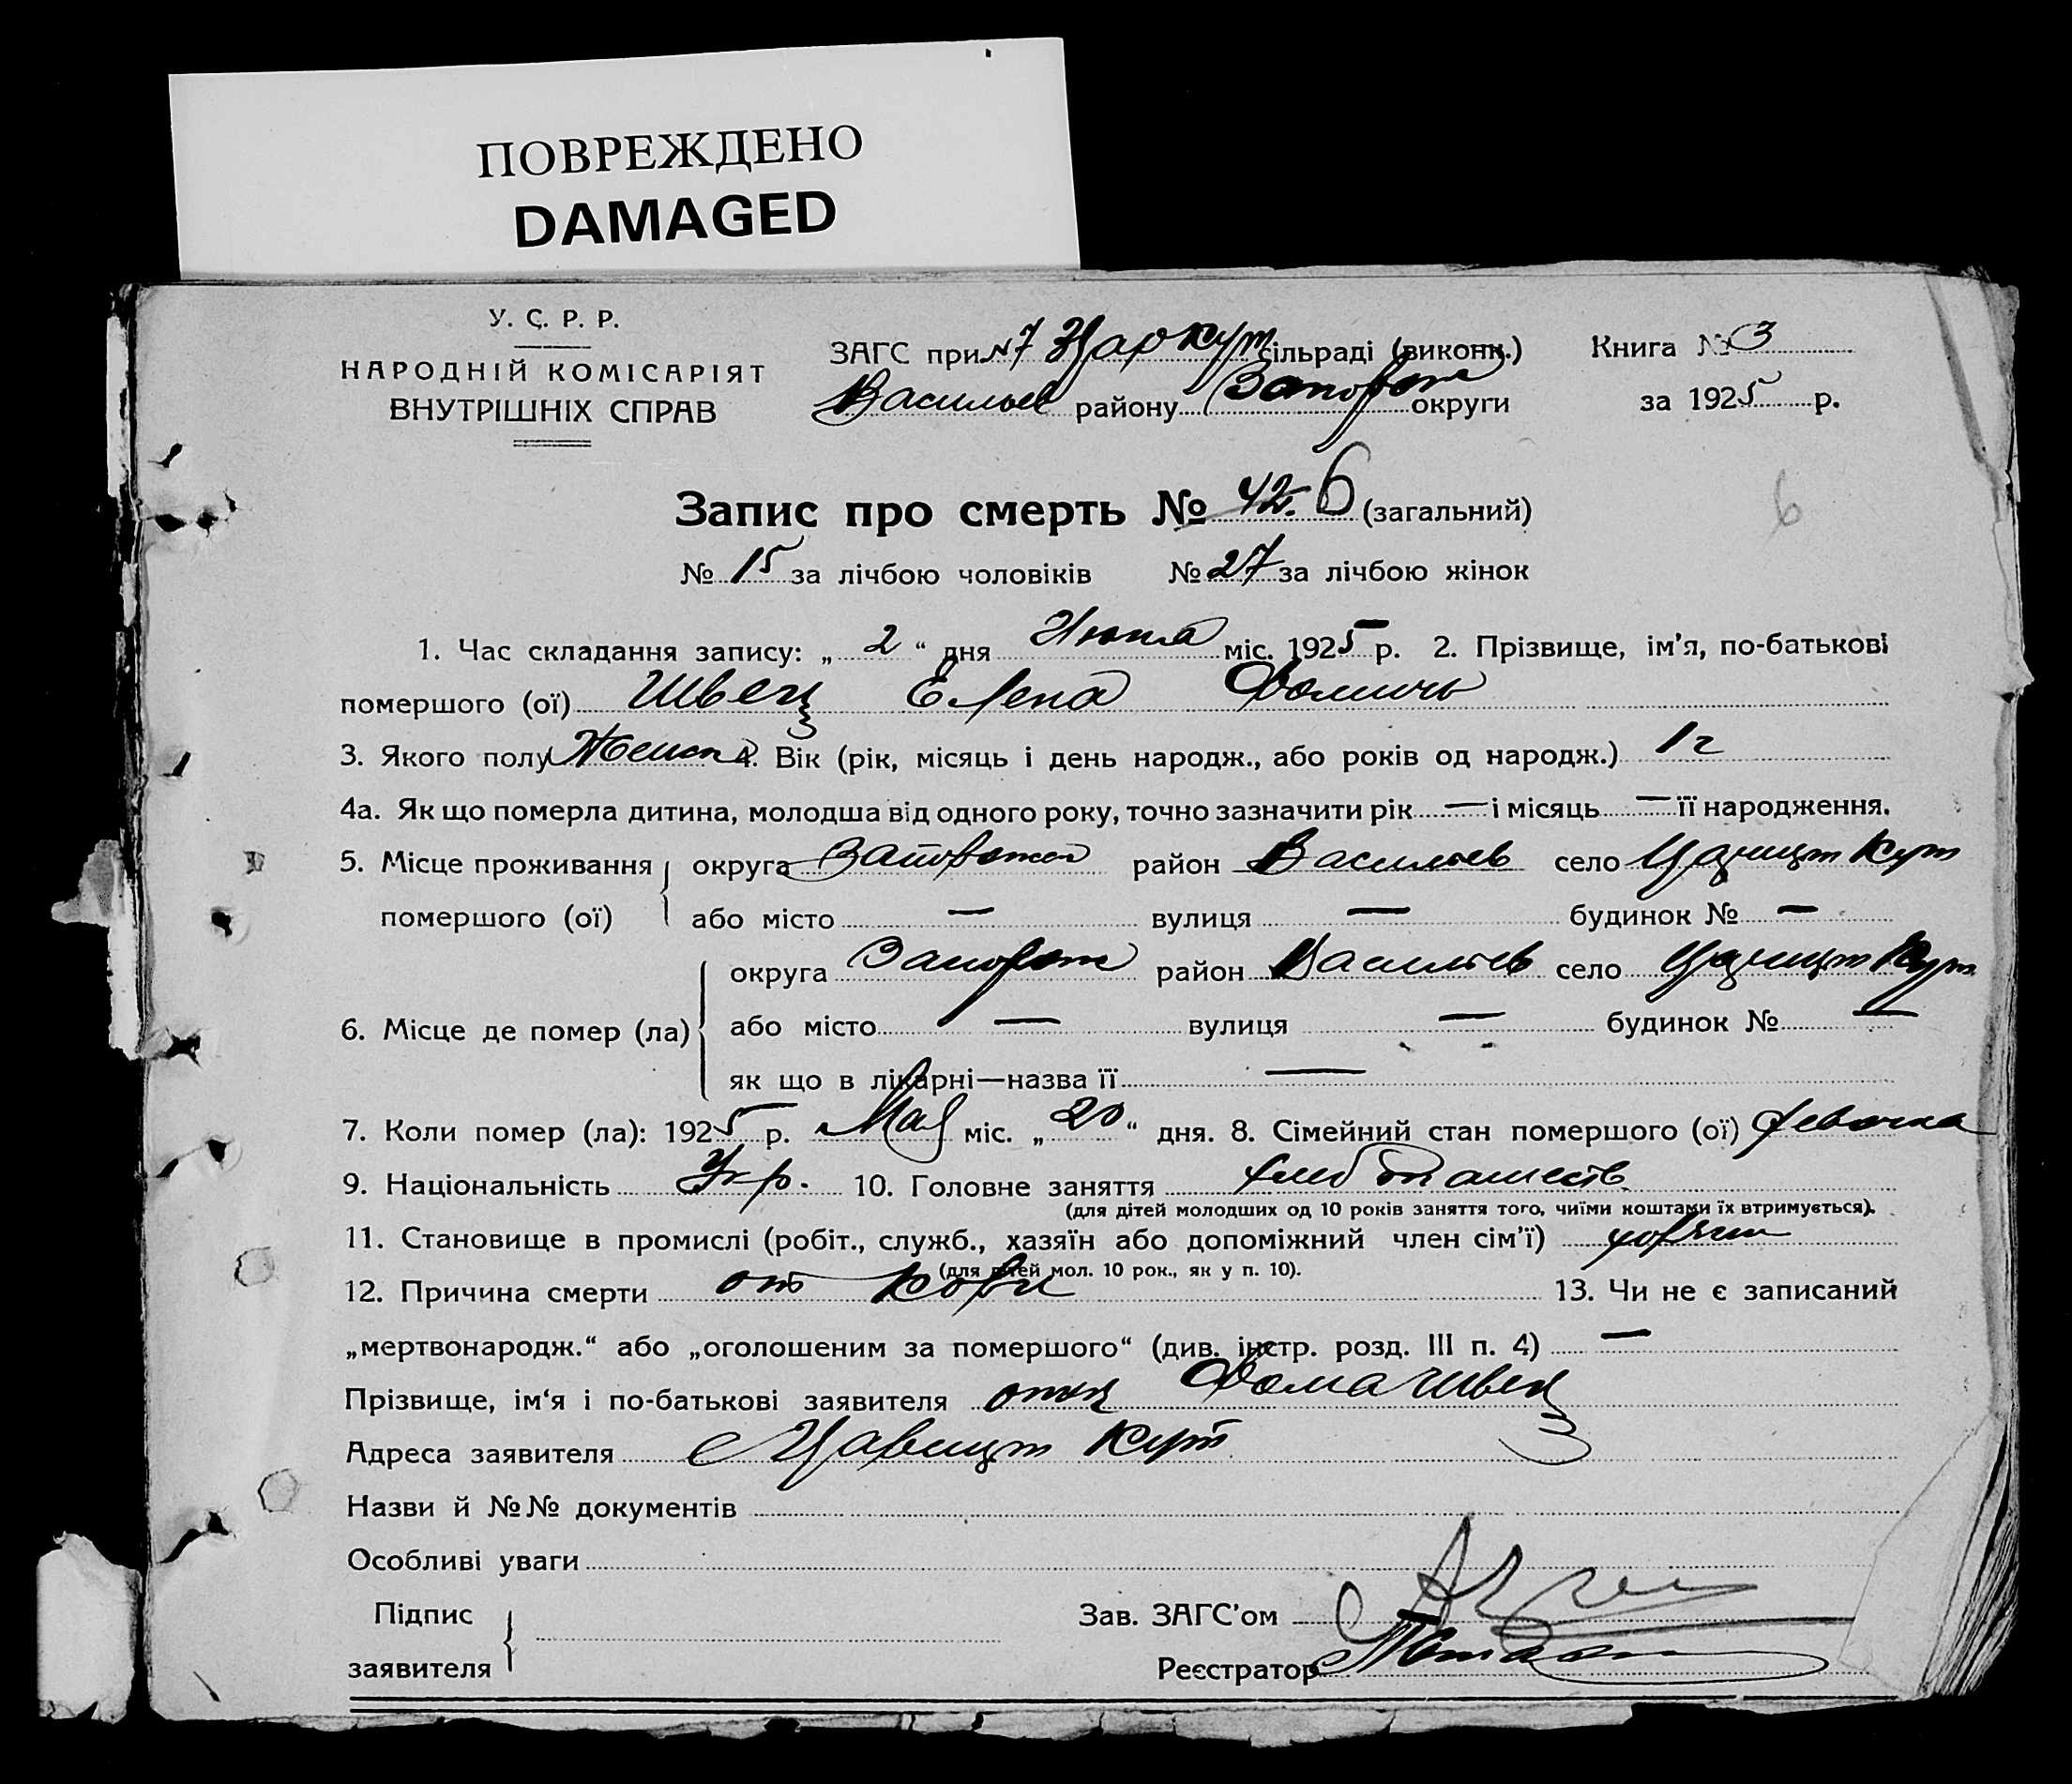 ПОВРЕЖДЕНО
DAMAGED
У. С. Р. Р.
НАРОДНІЙ КОМІСАРІЯТ
ВНУТРІШНІХ СПРАВ
ЗАГС при №7 Царкут сільраді (виконк.)
Васильев району Запорож округи
Книга № 3
за 1925 р.
Запис про смерть № 42. 6 (загальний)
6
№ 15 за лічбою чоловіків № 27 за лічбою жінок
1. Час складання запису: „ 2 “ дня міс. 1925 р. 2. Прізвище, ім'я, по-батькові
помершого (ої) Швец Елена Фомичь
3. Якого полу Женск 4. Вік (рік, місяць і день народж., або років од народж.) 1 г
4а. Як що померла дитина, молодша від одного року, точно зазначити рік — і місяць — її народження.
5. Місце проживання помершого (ої) округа район Васильев село Царицын Кут
або місто — вулиця — будинок № —
6. Місце де помер (ла) округа Запорож район Васильев село Царицын Кут
або місто — вулиця — будинок № —
як що в лікарні—назва її —
7. Коли помер (ла): 1925 р. Мая міс. „ 20 “ дня. 8. Сімейний стан помершого (ої) девочка
9. Національність Укр. 10. Головне заняття
(для дітей молодших од 10 років заняття того, чиїми коштами їх втримується).
11. Становище в промислі (робіт., служб., хазяїн або допоміжний член сім'ї)
(для дітей мол. 10 рок., як у п. 10).
12. Причина смерти от кори 13. Чи не є записаний
„мертвонародж.“ або „оголошеним за помершого“ (див. інстр. розд. III п. 4) —
Прізвище, ім'я і по-батькові заявителя отец Фома Швец
Адреса заявителя с Царицын Кут
Назви й №№ документів
Особливі уваги
Підпис заявителя
Зав. ЗАГС'ом
Реєстратор